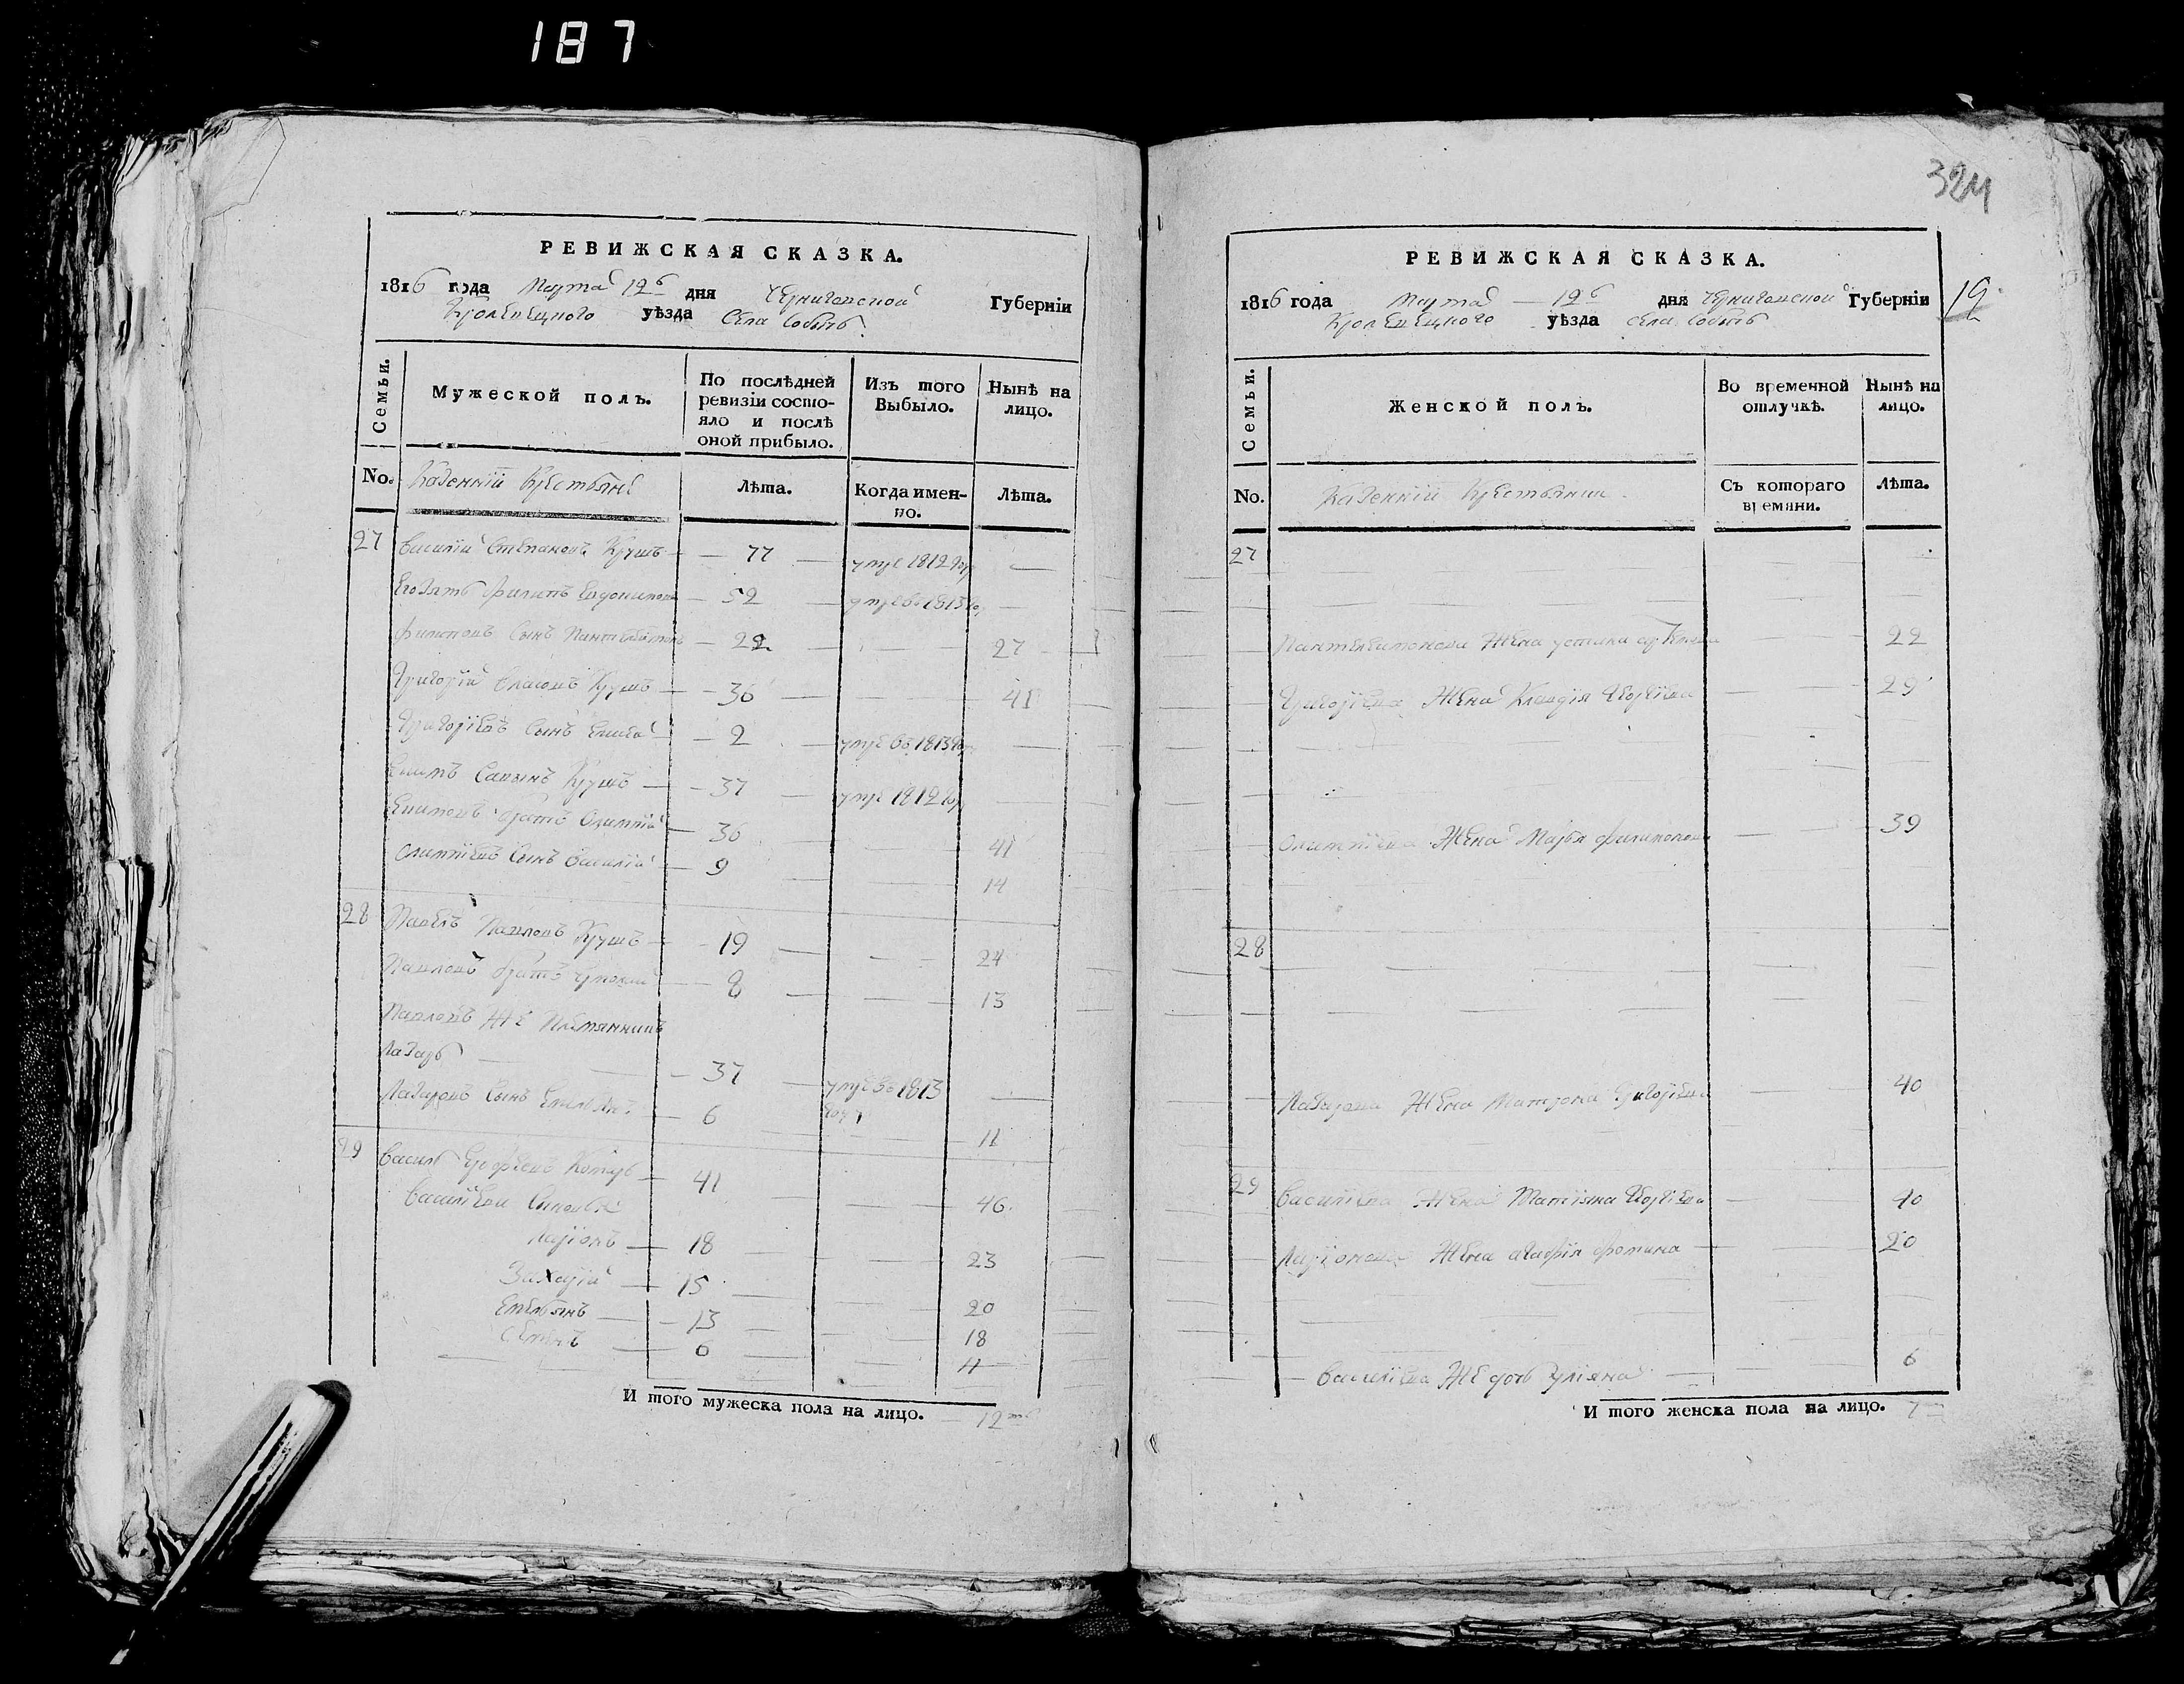 187
324
РЕВИЖСКАЯ СКАЗКА.
1816 года Марта 12 дня Черниговской Губерніи
Кролевецкого уѣзда Села Собичь
Семьи.
Мужеской полъ.
По послѣдней ревизіи состояло и послѣ оной прибыло.
Изъ того Выбыло.
Нынѣ на лицо.
No.
Казенній Крестьяне
Лѣта.
Когда именно.
Лѣта.
27 Василій Степановъ Кушъ 77 умре 1812 году
Его зять Филипъ 52 умре въ 1813 году
Филиповъ Сынъ Пантелеймонъ 22 27
Григорій Власовъ Кушъ 36 41
Григоріевъ Сынъ 2 умре въ 1813 году
Савинъ Кушъ 37 умре 1812 году
братъ Олимпій 36 41
Олимпіевъ Сынъ Василій 9 14
28 Павелъ Павловъ Кушъ 19 24
Павловъ братъ 8 13
Павловъ же Племянникъ
Лазарь 37 умре въ 1813 году
Лазаровъ Сынъ Емельянъ 6 11
29 Василь Ерофѣевъ 41 46
Василіеви Сыновья
Ларіонъ 18 23
Захарій 15 20
Емельянъ 13 18
Семенъ 6 11
И того мужеска пола на лицо. 12
РЕВИЖСКАЯ СКАЗКА.
1816 года Марта 12 дня Черниговской Губерніи
19
Кролевецкого уѣзда Села Собичь
Семьи.
Женской полъ.
Во временной отлучкѣ.
Нынѣ на лицо.
No.
Казенній Крестьянки
Съ котораго времяни.
Лѣта.
27
Пантелеимонова Жена Устина 22
Григоріева Жена Клавдія 29
Олимпіева Жена Марья Филимонова 39
28
Лазарова Жена Матрона Григоріева 40
29 Василіева Жена Татіяна 40
Ларіонова Жена Агафія Фомина 20
Василіева Же дочь Уліяна 6
И того женска пола на лицо. 7